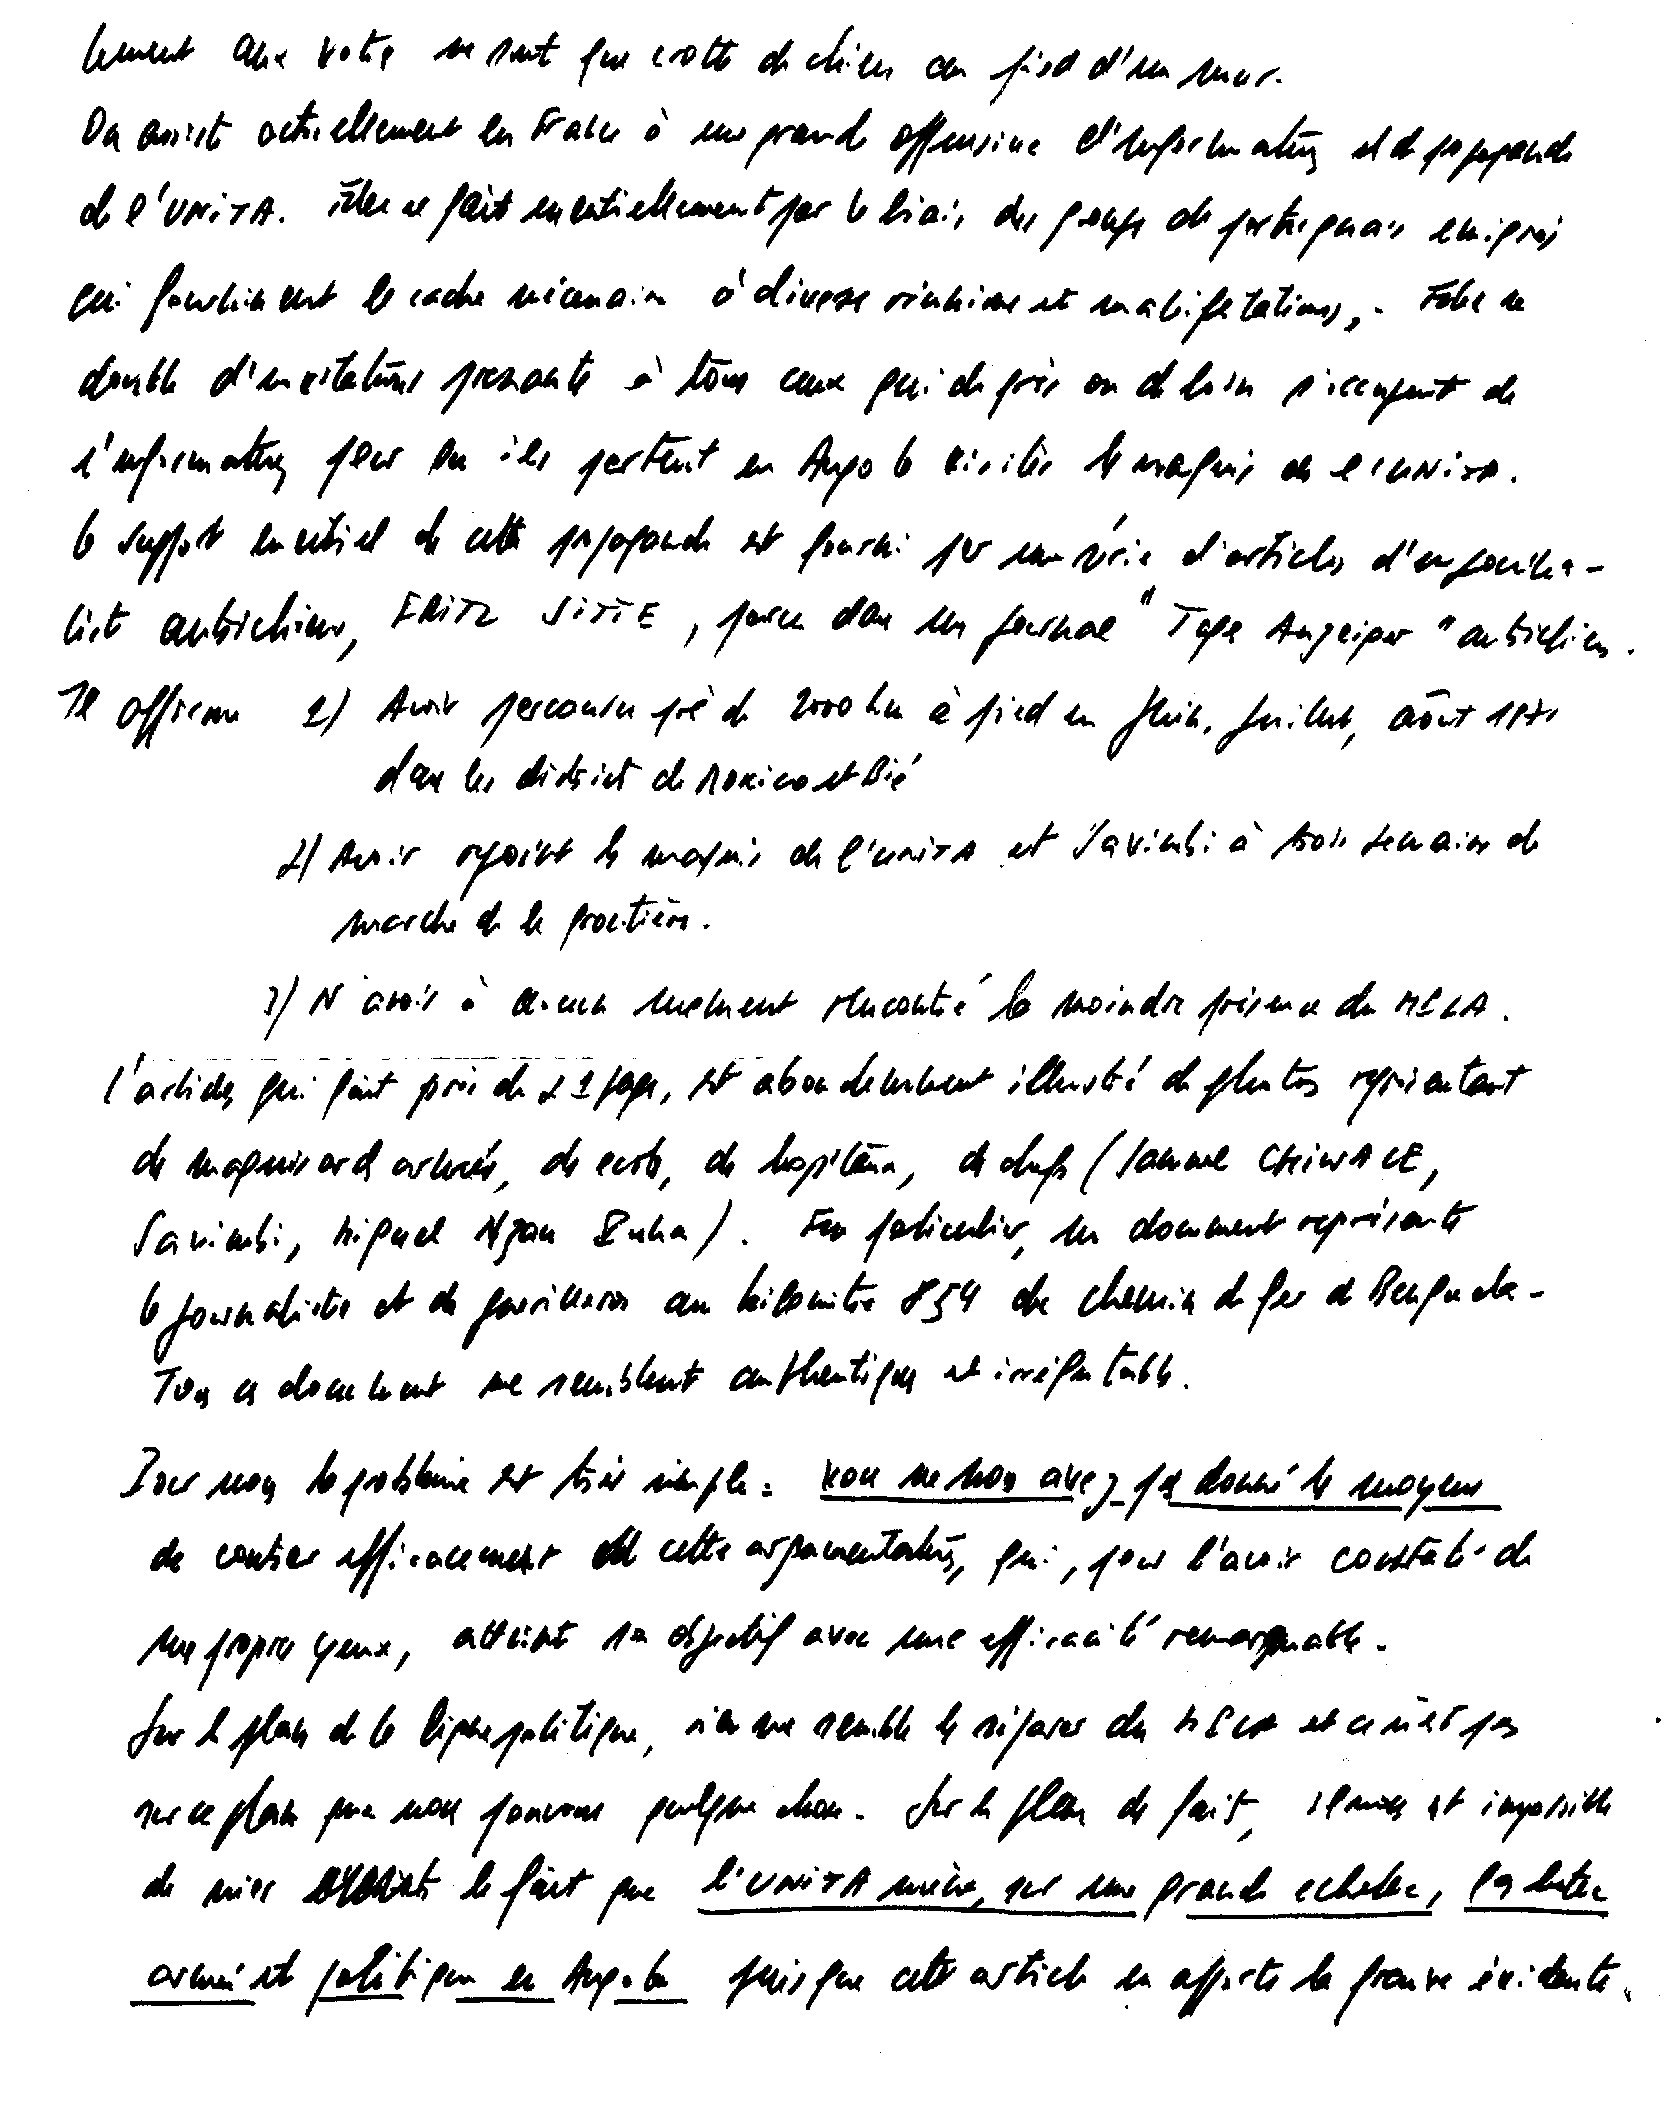 ne sont que crotte de chien au pied d'un mur.
On assiste actuellement en France à une grande offensive d'information et de propagande
de l'UNITA. Elle se fait essentiellement par le biais des groupes de portugais emigrés
qui fournissent le cadre nécessaire à diverses réunions et manifestations. Elle se
double d'invitations pressantes à tous ceux qui de près ou de loin s'occupent de
l'information pour qu'ils partent en Angola visiter le maquis de l'UNITA.
le support essentiel de cette propagande est fourni par une série d'articles d'un journa-
liste autrichien, FRITZ SITTE, parus dans un journal "Tages Anzeiger" autrichien.
Il affirme 1) Avoir parcouru près de 2000 km à pied en Juin, Juillet, août 1971
dans les districts de Moxico et Bié
2) Avoir rejoint le maquis de l'UNITA et Savimbi à trois semaines de
marche de la frontière.
3) N'avoir à aucun moment rencontré la moindre présence du MPLA.
L'article, qui fait près de pages, est abondamment illustré de photos représentant
des maquisards armés, des écoles, des hopitaux, des chefs (Samuel CHIWALE,
Savimbi, Miguel Nzau Puna). En particulier, un document représente
le journaliste et des guerilleros au kilomètre 854 du chemin de fer de Benguela.
Tous ces documents me semblent authentiques et irréfutables.
Pour nous le problème est très simple: vous ne nous avez pas donné les moyens
de contrer efficacement cette argumentation, qui, pour l'avoir constaté de
mes propres yeux, atteint son objectif avec une efficacité remarquable.
Sur le plan de la ligne politique, rien ne semble le séparer du MPLA et ce n'est pas
sur ce plan que nous pouvons quelque chose. Sur le plan des faits, il nous est impossible
de nier le fait que l'UNITA mène, sur une grande echelle, la lutte
armée et politique en Angola puisque cet article en apporte la preuve évidente.